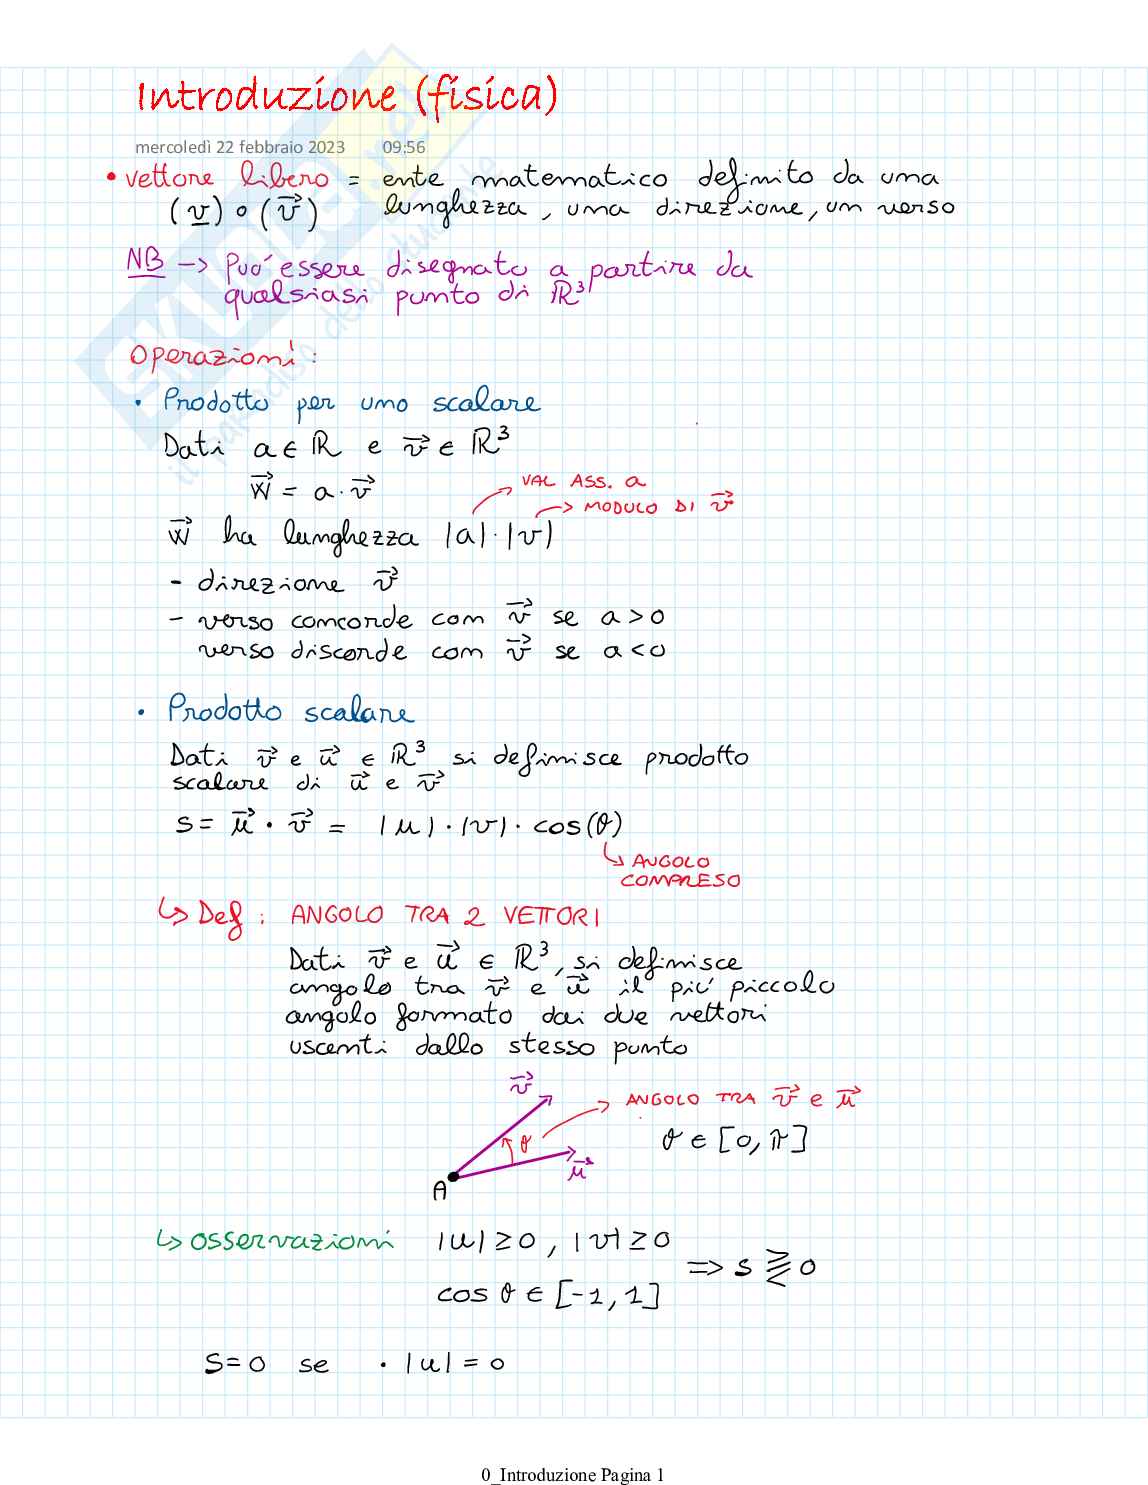 Introduzione (fisica)
mercoledì 22 febbraio 2023 09:56
• vettore libero = ente matematico definito da una
(v) o (v⃗) lunghezza, una direzione, un verso
NB -> Può essere disegnato a partire da
qualsiasi punto di ℝ³
Operazioni:
• Prodotto per uno scalare
Dati a ∈ ℝ e v⃗ ∈ ℝ³
w⃗ = a · v⃗
VAL ASS. a
MODULO DI v⃗
w⃗ ha lunghezza |a| · |v|
- direzione v⃗
- verso concorde con v⃗ se a > 0
verso discorde con v⃗ se a < 0
• Prodotto scalare
Dati v⃗ e u⃗ ∈ ℝ³ si definisce prodotto
scalare di u⃗ e v⃗
s = u⃗ · v⃗ = |u| · |v| · cos(θ)
↳ ANGOLO
COMPRESO
↳ Def: ANGOLO TRA 2 VETTORI
Dati v⃗ e u⃗ ∈ ℝ³, si definisce
angolo tra v⃗ e u⃗ il più piccolo
angolo formato dai due vettori
uscenti dallo stesso punto
v⃗
ANGOLO TRA v⃗ e u⃗
θ
θ ∈ [0, π]
u⃗
A
↳ osservazioni |u| ≥ 0, |v| ≥ 0
=> s ⪌ 0
cos θ ∈ [-1, 1]
S = 0 se • |u| = 0
0_Introduzione Pagina 1